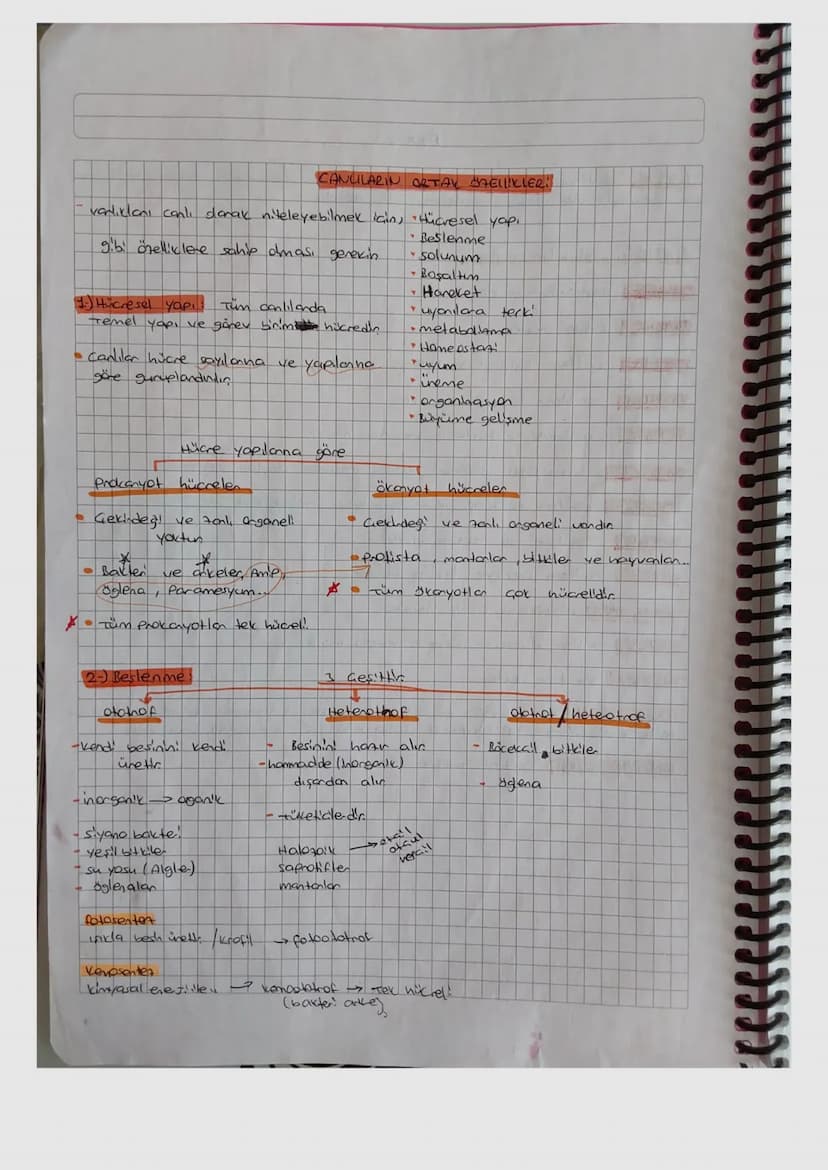 CANLILARIN ORTAK ÖZELLİKLERİ
- varlıkları canlı olarak niteleyebilmek için,
gibi özelliklere sahip olması gerekir
• Hücresel yapı
• Beslenme
• solunum
• Boşaltım
• Hareket
• uyarılara tepki
• metabolizma
• Homeostazi
• uyum
• üreme
• organizasyon
• Büyüme gelişme
1-) Hücresel yapı: Tüm canlılarda
temel yapı ve görev birimi hücredir
• Canlılar hücre sayılarına ve yapılarına
göre guruplandırılır
Hücre yapılarına göre
Prokaryot hücreler
• Çekirdeği ve zarlı organeli
yoktur
• Bakteri ve arkeler, Amip,
öglena, paramesyum...
• Tüm prokaryotlar tek hücreli
ökaryot hücreler
• Çekirdeği ve zarlı organeli vardır
• Protista, mantarlar, bitkiler ve hayvanlar...
• Tüm ökaryotlar çok hücrelidir
2-) Beslenme:
3 Çeşittir
ototrof
- kendi besinini kendi
üretir
- inorganik → oganik
- siyano bakteri
- yeşil bitkiler
- su yosu (Algle)
- öglenalar
Heterotrof
- Besinini hazır alır
- hammadde (inorganik)
dışardan alır
- tüketicilerdir
Holozoik → etçil
otçul
saprofitler
mantarlar
ototrof / heteotrof
- Böcekçil bitkiler
- öglena
fotosentez
ışıkla besin üretir /klrofil → fotoototrof
Kemosentez
kimyasal enerjiden → kemoototrof → Tek hücreli
(bakteri arke)